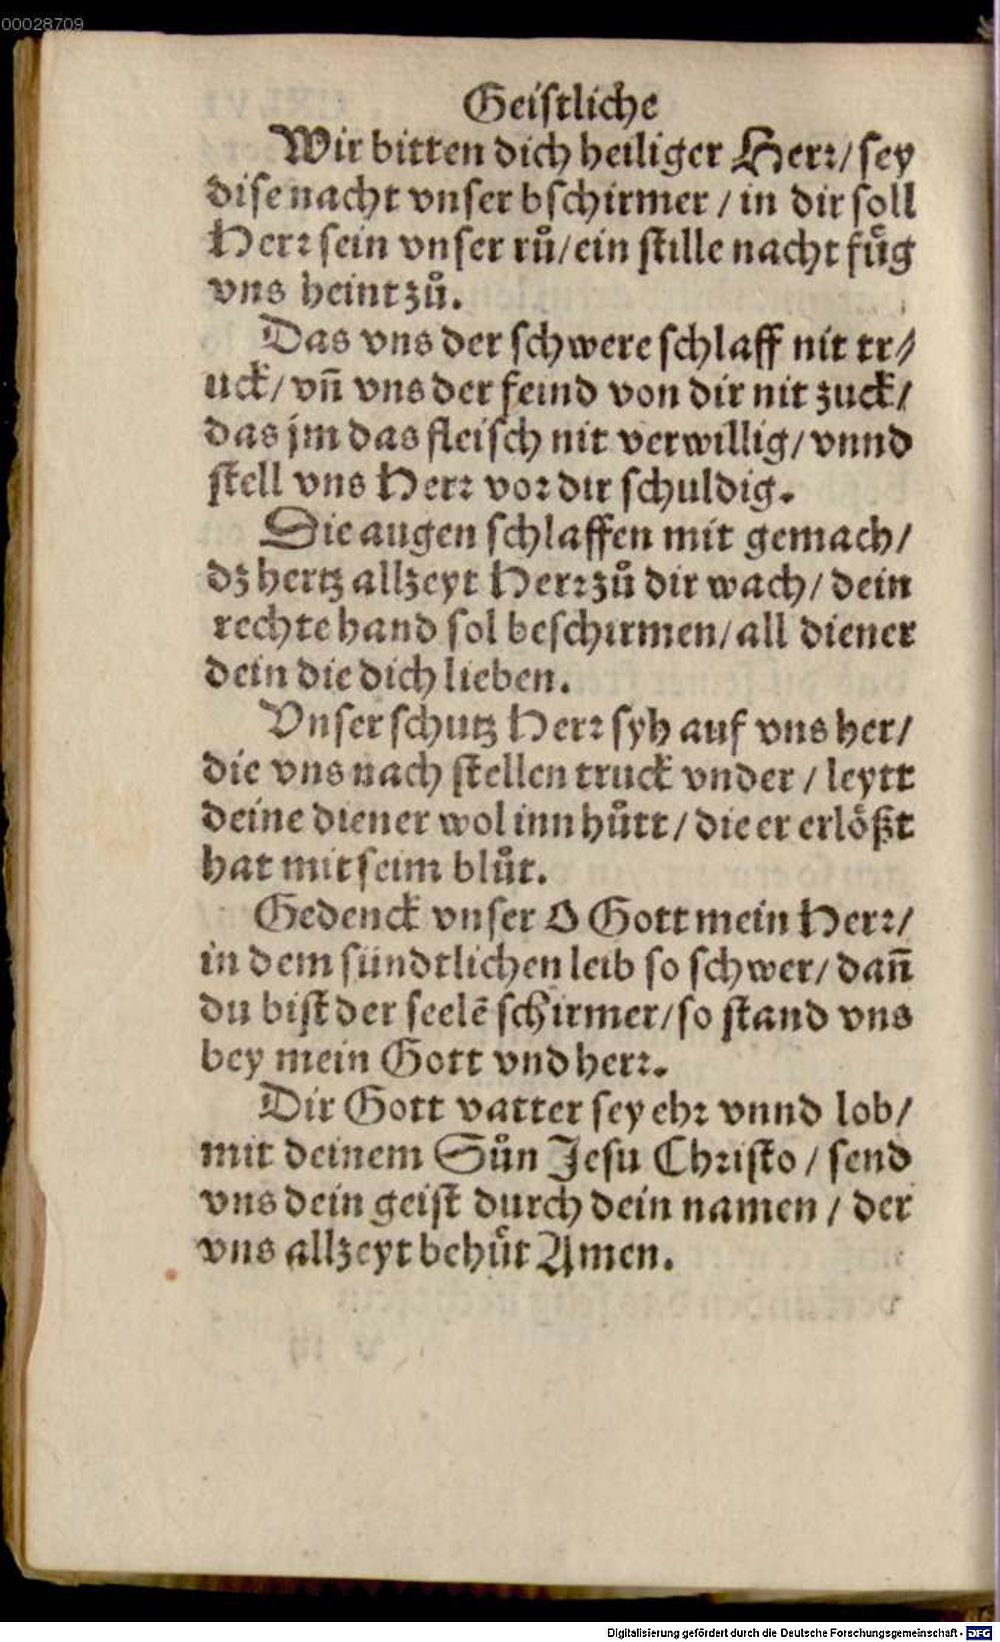 00028709
Geistliche
Wir bitten dich heiliger Herr/ sey
dise nacht vnser bschirmer / in dir soll
Herr sein vnser rů/ ein stille nacht fůg
vns heint zů.
Das vns der schwere schlaff nit tr⸗
uck/ vñ vns der feind von dir nit zuck/
das jm das fleisch nit verwillig/ vnnd
stell vns Herr vor dir schuldig.
Die augen schlaffen mit gemach/
dz hertz allzeyt Herr zů dir wach/ dein
rechte hand sol beschirmen/ all diener
dein die dich lieben.
Vnser schutz Herr syh auf vns her/
die vns nach stellen truck vnder / leytt
deine diener wol inn hůtt/ die er erlößt
hat mit seim blůt.
Gedenck vnser O Gott mein Herr/
in dem sündtlichen leib so schwer/ dañ
du bist der seelẽ schirmer/ so stand vns
bey mein Gott vnd herr.
Dir Gott vatter sey ehr vnnd lob/
mit deinem Sůn Jesu Christo / send
vns dein geist durch dein namen / der
vns allzeyt behůt Amen.
Digitalisierung gefördert durch die Deutsche Forschungsgemeinschaft - DFG